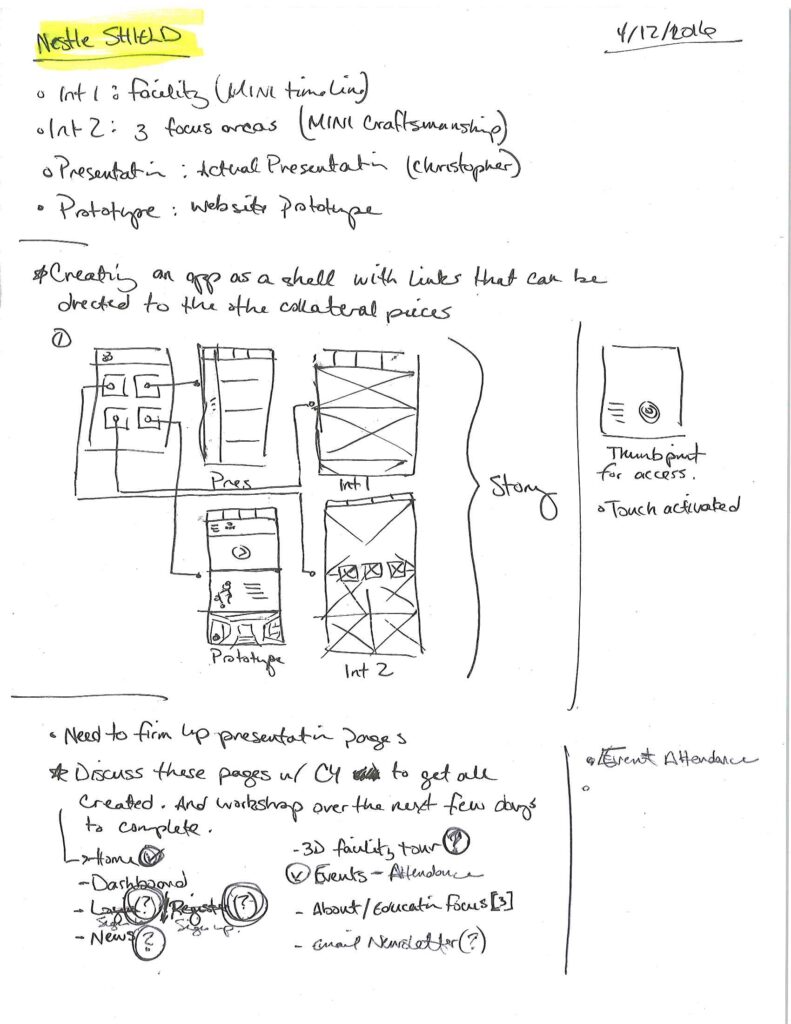 Nestle SHIELD
4/12/2016
Int 1: facility (MINI timeline)
Int 2: 3 focus areas (MINI Craftsmanship)
Presentation: Actual Presentation (Christopher)
Prototype: Website Prototype
*Creating an app as a shell with links that can be
directed to the othe collateral pieces
1
Pres
Int 1
Prototype
Int 2
Story
Thumbprint
for access.
Touch activated
Need to firm up presentation pages
* Discuss these pages w/ CY to get all
created. And workshop over the next few days
to complete.
Home
- Dashboard
- Login (?) / Register (?)
Sign in Sign up.
- News (?)
- 3D facility tour (?)
Events - Attendance
- About/Education Focus [3]
- Email Newsletter (?)
Event Attendance